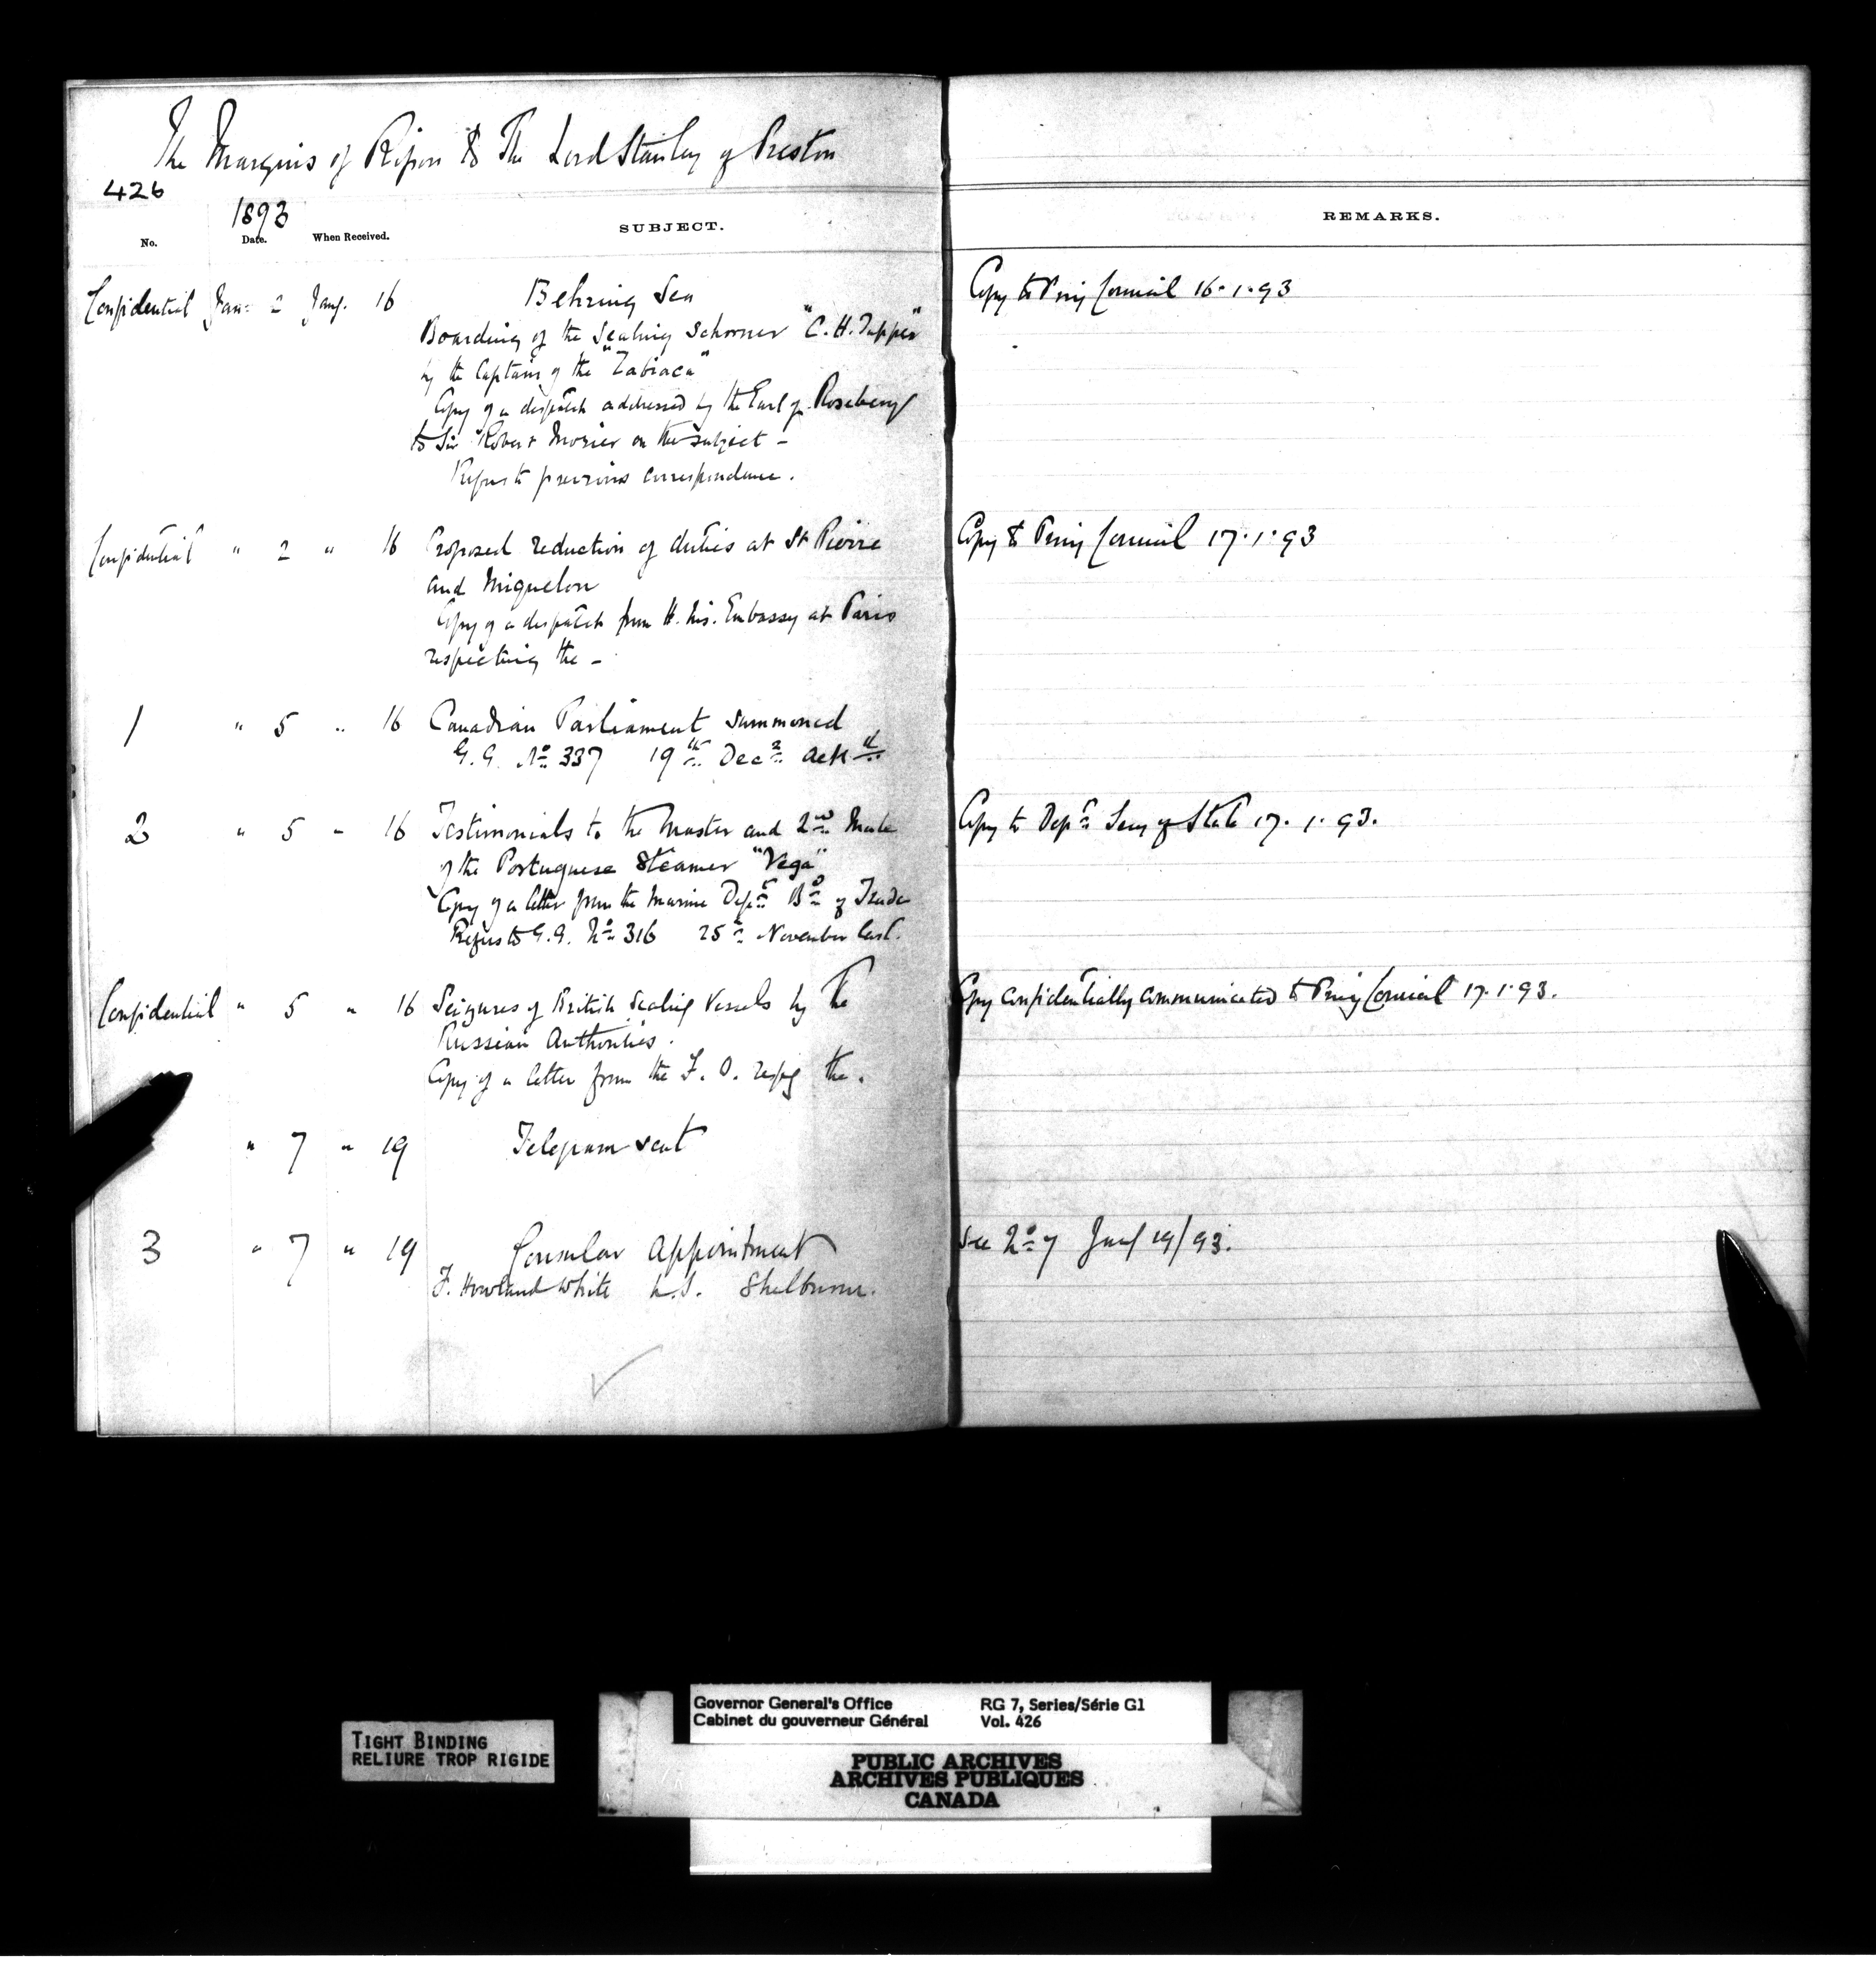 The Marquis of Ripon to The Lord Stanley of Preston
426
1893
No. Date. When Received. SUBJECT. REMARKS.
Confidential Jan: 2 Jany. 16 Behring Sea Copy to Privy Council 16.1.93
Boarding of the Sealing Schooner "C. H. Tupper"
by the Captain of the "Zabiaca"
Copy of a despatch addressed by the Earl of Rosebery
to Sir Robert Morier on the subject -
Refers to previous correspondence.
Confidential " 2 " 16 Proposed reduction of duties at St Pierre Copy to Privy Council 17.1.93
and Miquelon
Copy of a despatch from H. Ms. Embassy at Paris
respecting the -
1 " 5 " 16 Canadian Parliament summoned
G.G. No 337 19th Decr ackd
2 " 5 " 16 Testimonials to the Master and 2nd Mate Copy to Dept Secy of State 17.1.93.
of the Portuguese Steamer "Vega"
Copy of a letter from the Marine Dept Bd of Trade
Refers to G.G. No 316 25th November last.
Confidential " 5 " 16 Seizures of British Sealing Vessels by The Copy confidentially communicated to Privy Council 17.1.93.
Russian Authorities.
Copy of a letter from the F. O. respg the.
" 7 " 19 Telegram sent
3 " 7 " 19 Consular Appointment See No 7 Jany 19/93.
F. Howland White N.S. Shelburne.
Governor General's Office RG 7, Series/Série G1
Cabinet du gouverneur Général Vol. 426
TIGHT BINDING
RELIURE TROP RIGIDE
PUBLIC ARCHIVES
ARCHIVES PUBLIQUES
CANADA